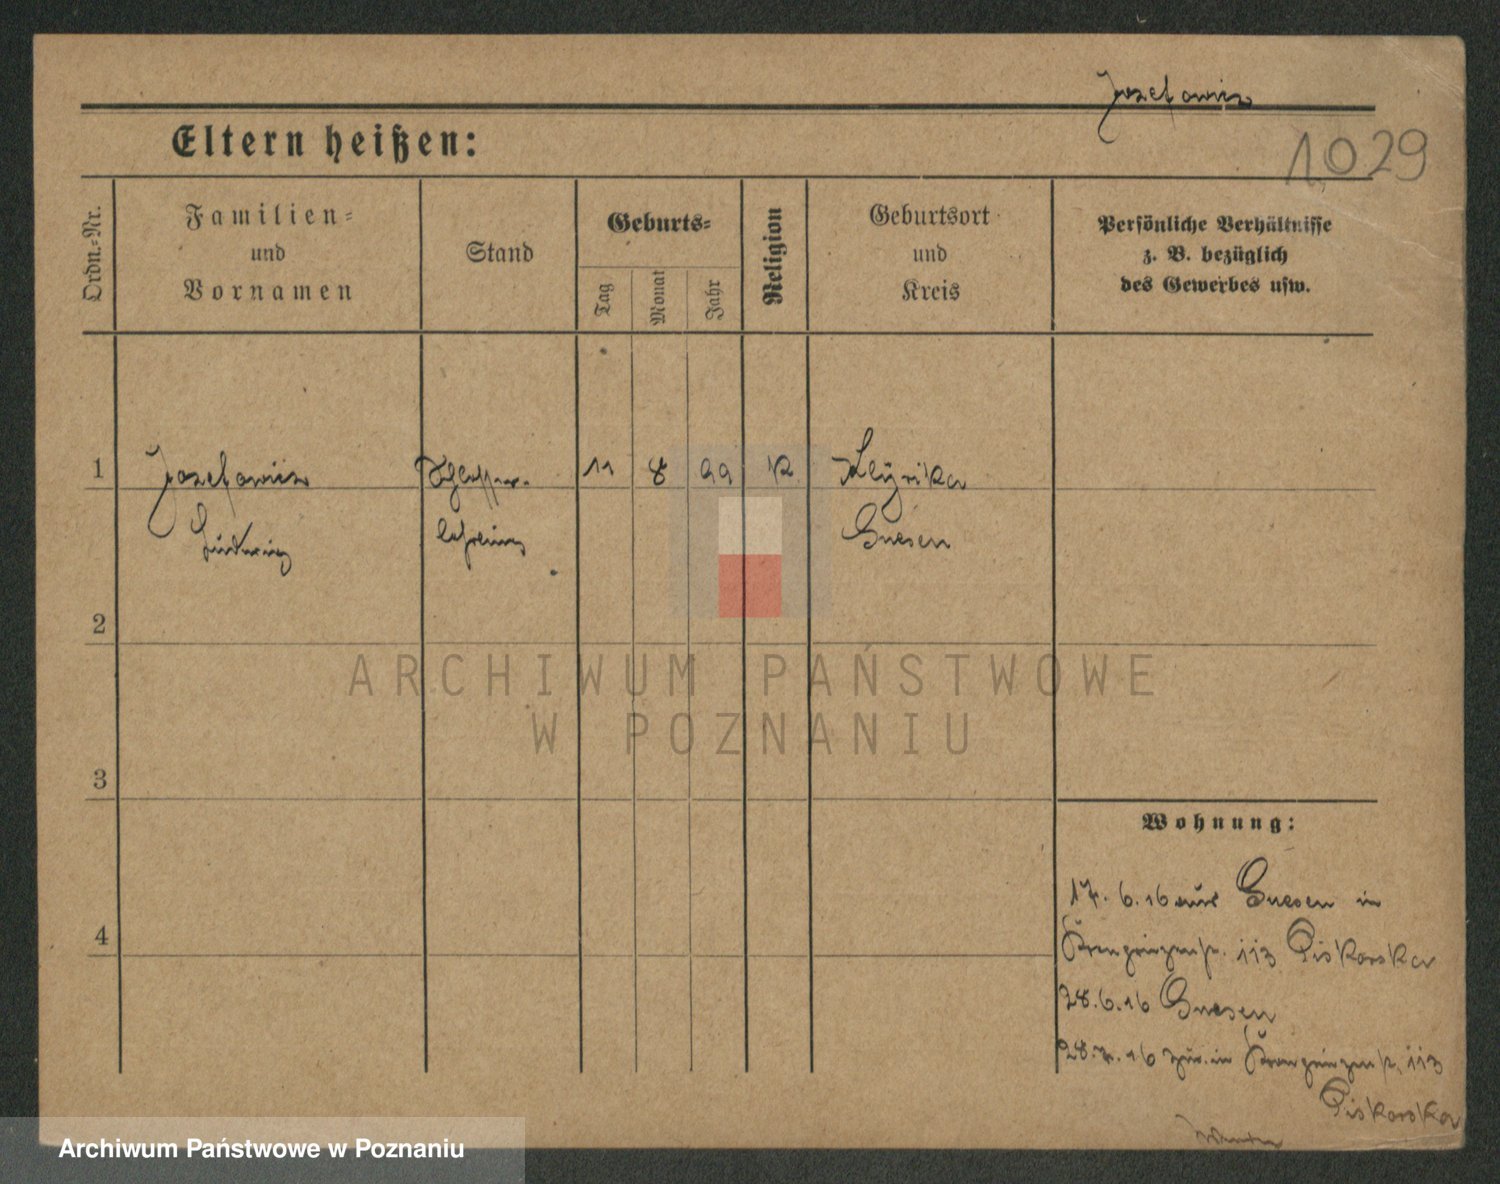 Jozefowicz
1029
Eltern heißen:
Ordn.=Nr.
Familien=
und
Vornamen
Stand
Geburts=
Tag
Monat
Jahr
Religion
Geburtsort
und
Kreis
Persönliche Verhältnisse
z. B. bezüglich
des Gewerbes usw.
1
Jozefowicz
Ludwig
Schlosser-
lehrling
11
8
99
K.
Gnesen
2
3
4
Wohnung:
17.6.16 aus Gnesen in
Kronprinzenstr. 113 Piskorska
28.6.16 Gnesen
28.7.16 zur. in Kronprinzenstr. 113
Piskorska
ARCHIWUM PAŃSTWOWE
W POZNANIU
Archiwum Państwowe w Poznaniu